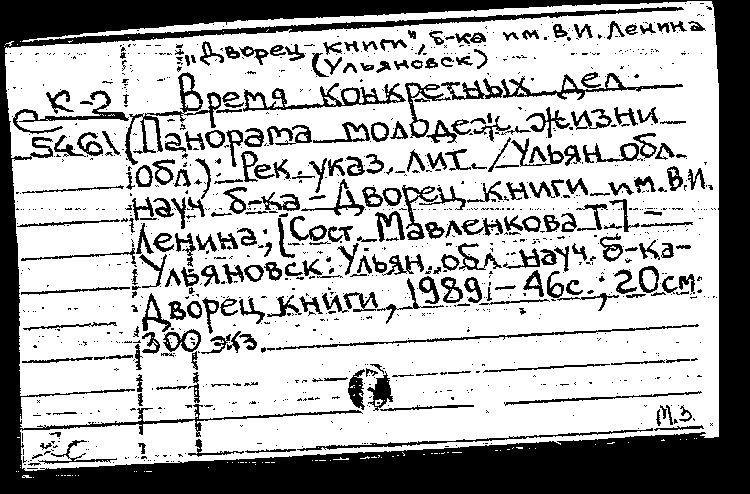 „Дворец книги", б-ка им. В.И. Ленина
(Ульяновск)
К-2
5461
Время конкретных дел.
(Панорама молодеж. жизни
обл.): Рек. указ. лит. /Ульян. обл.
науч. б-ка - Дворец книги им. В.И.
Ленина; [Сост. Мавленкова Т.] -
Ульяновск: Ульян. обл. науч. б-ка-
Дворец книги, 1989. - 46с.; 20см.
300 экз.
М.З.
2с